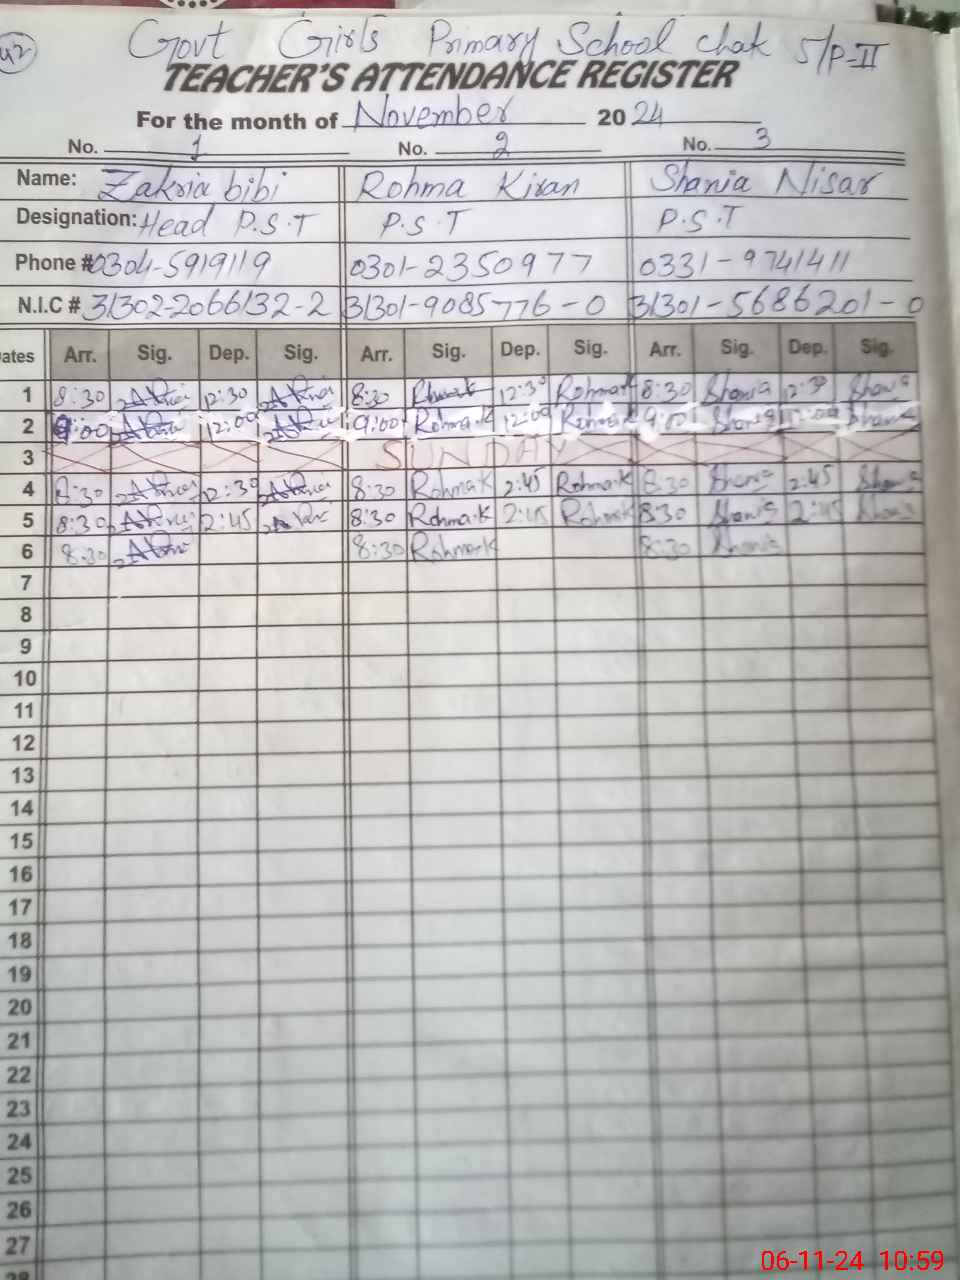 42
Govt Girls Primary School chak 5/P-II
TEACHER'S ATTENDANCE REGISTER
For the month of November 2024
No. 1 No. 2 No. 3
Name: Zakria bibi Rohma Kiran Shania Nisar
Designation: Head P.S.T P.S.T P.S.T
Phone # 0304-5919119 0301-2350977 0331-9741411
N.I.C # 31302-2066132-2 31301-9085776-0 31301-5686201-0
ates Arr. Sig. Dep. Sig. Arr. Sig. Dep. Sig. Arr. Sig. Dep. Sig.
1 8:30 12:30 8:30 12:30 Rohmak 8:30 Shania 12:30 Shania
2 9:00 12:00 9:00 Rohmak 12:00 Rohmak 9:00 Shania 12:00 Shania
3 SUNDAY
4 8:30 2:30 8:30 Rohmak 2:45 Rohmak 8:30 Shania 2:45 Shania
5 8:30 2:45 8:30 Rohmak 2:45 Rohmak 8:30 Shania 2:45 Shania
6 8:30 8:30 Rohmak 8:30 Shania
7
8
9
10
11
12
13
14
15
16
17
18
19
20
21
22
23
24
25
26
27
28
06-11-24 10:59